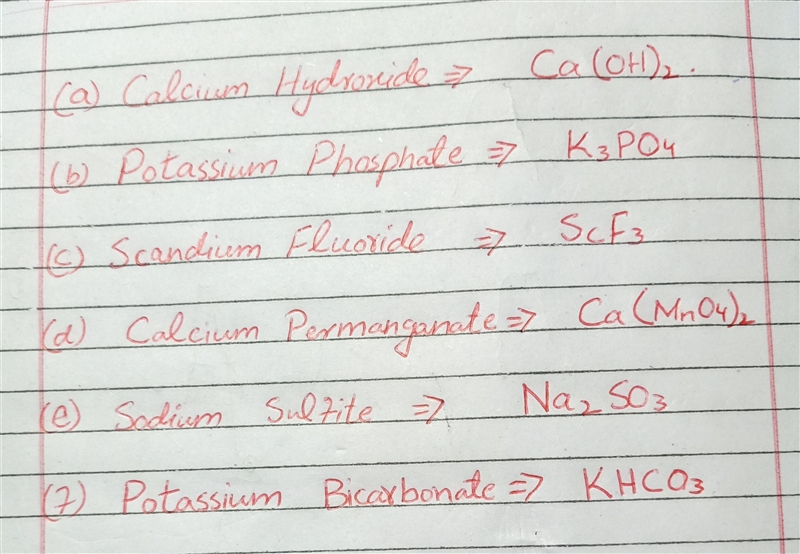 (a) Calcium Hydroxide ⇒ Ca(OH)₂.
(b) Potassium Phosphate ⇒ K₃PO₄
(c) Scandium Fluoride ⇒ ScF₃
(d) Calcium Permanganate ⇒ Ca(MnO₄)₂
(e) Sodium Sulfite ⇒ Na₂SO₃
(f) Potassium Bicarbonate ⇒ KHCO₃